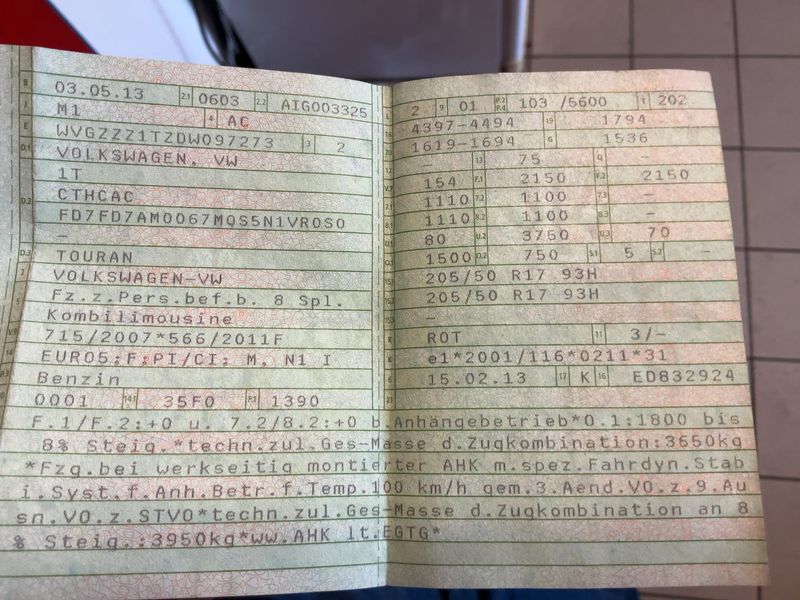 B 03.05.13 2.1 0603 2.2 AIG003325
J M1 4 AC
E WVGZZZ1TZDW097273 3 2
D.1 VOLKSWAGEN, VW
1T
D.2 CTHCAC
FD7FD7AM0067MQS5N1VR0S0
–
D.3 TOURAN
2 VOLKSWAGEN-VW
5 Fz.z.Pers.bef.b. 8 Spl.
Kombilimousine
V.9 715/2007*566/2011F
14 EURO5;F;PI/CI; M, N1 I
P.3 Benzin
10 0001 14.1 35F0 P.1 1390
L 2 9 01 P.2 P.4 103 /5600 T 202
18 4397-4494 19 1794
20 1619-1694 G 1536
12 – 13 75 Q –
V.7 154 F.1 2150 F.2 2150
7.1 1110 7.2 1100 7.3 –
8.1 1110 8.2 1100 8.3 –
U.1 80 U.2 3750 U.3 70
O.1 1500 O.2 750 S.1 5 S.2 –
15.1 205/50 R17 93H
15.2 205/50 R17 93H
15.3 –
R ROT 11 3/–
K e1*2001/116*0211*31
6 15.02.13 17 K 16 ED832924
21
F.1/F.2:+0 u. 7.2/8.2:+0 b.Anhängebetrieb*O.1:1800 bis
8% Steig.*techn.zul.Ges-Masse d.Zugkombination:3650kg
*Fzg.bei werkseitig montierter AHK m.spez.Fahrdyn.Stab
i.Syst.f.Anh.Betr.f.Temp.100 km/h gem.3.Aend.VO.z.9.Au
sn.VO.z.STVO*techn.zul.Ges-Masse d.Zugkombination an 8
% Steig.:3950kg*ww.AHK lt.EGTG*